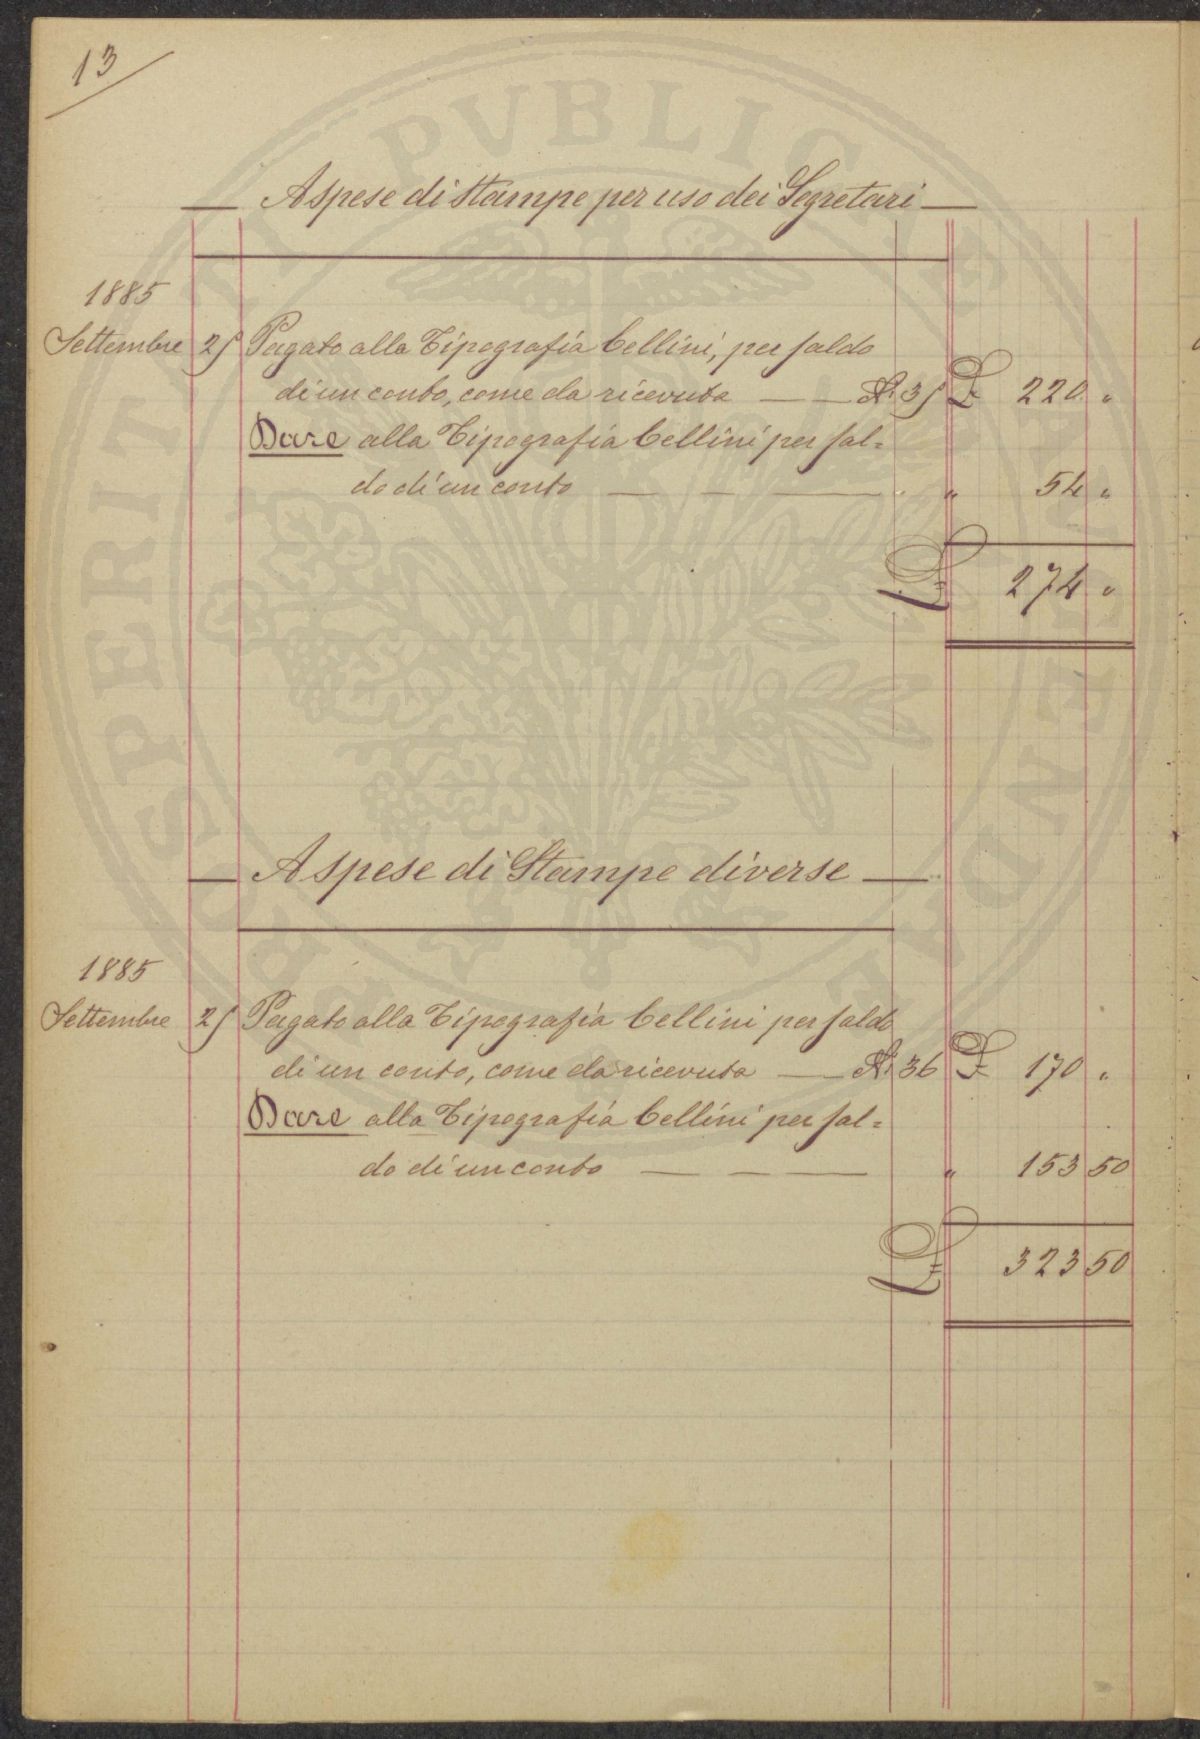 13
Aspese di Stampe per uso dei Segretari
1885
Settembre 25 Pagato alla Tipografia Cellini, per saldo
di un conto, come da ricevuta — — N.º 35 L. 220 "
Dare alla Tipografia Cellini per sal=
do di un conto — — — " 54 "
L. 274 "
Aspese di Stampe diverse
1885
Settembre 25 Pagato alla Tipografia Cellini per saldo
di un conto, come da ricevuta — N.º 36 L. 170 "
Dare alla Tipografia Cellini per sal=
do di un conto — — — " 153 50
L. 323 50
PROSPERITATI PVBLICAE